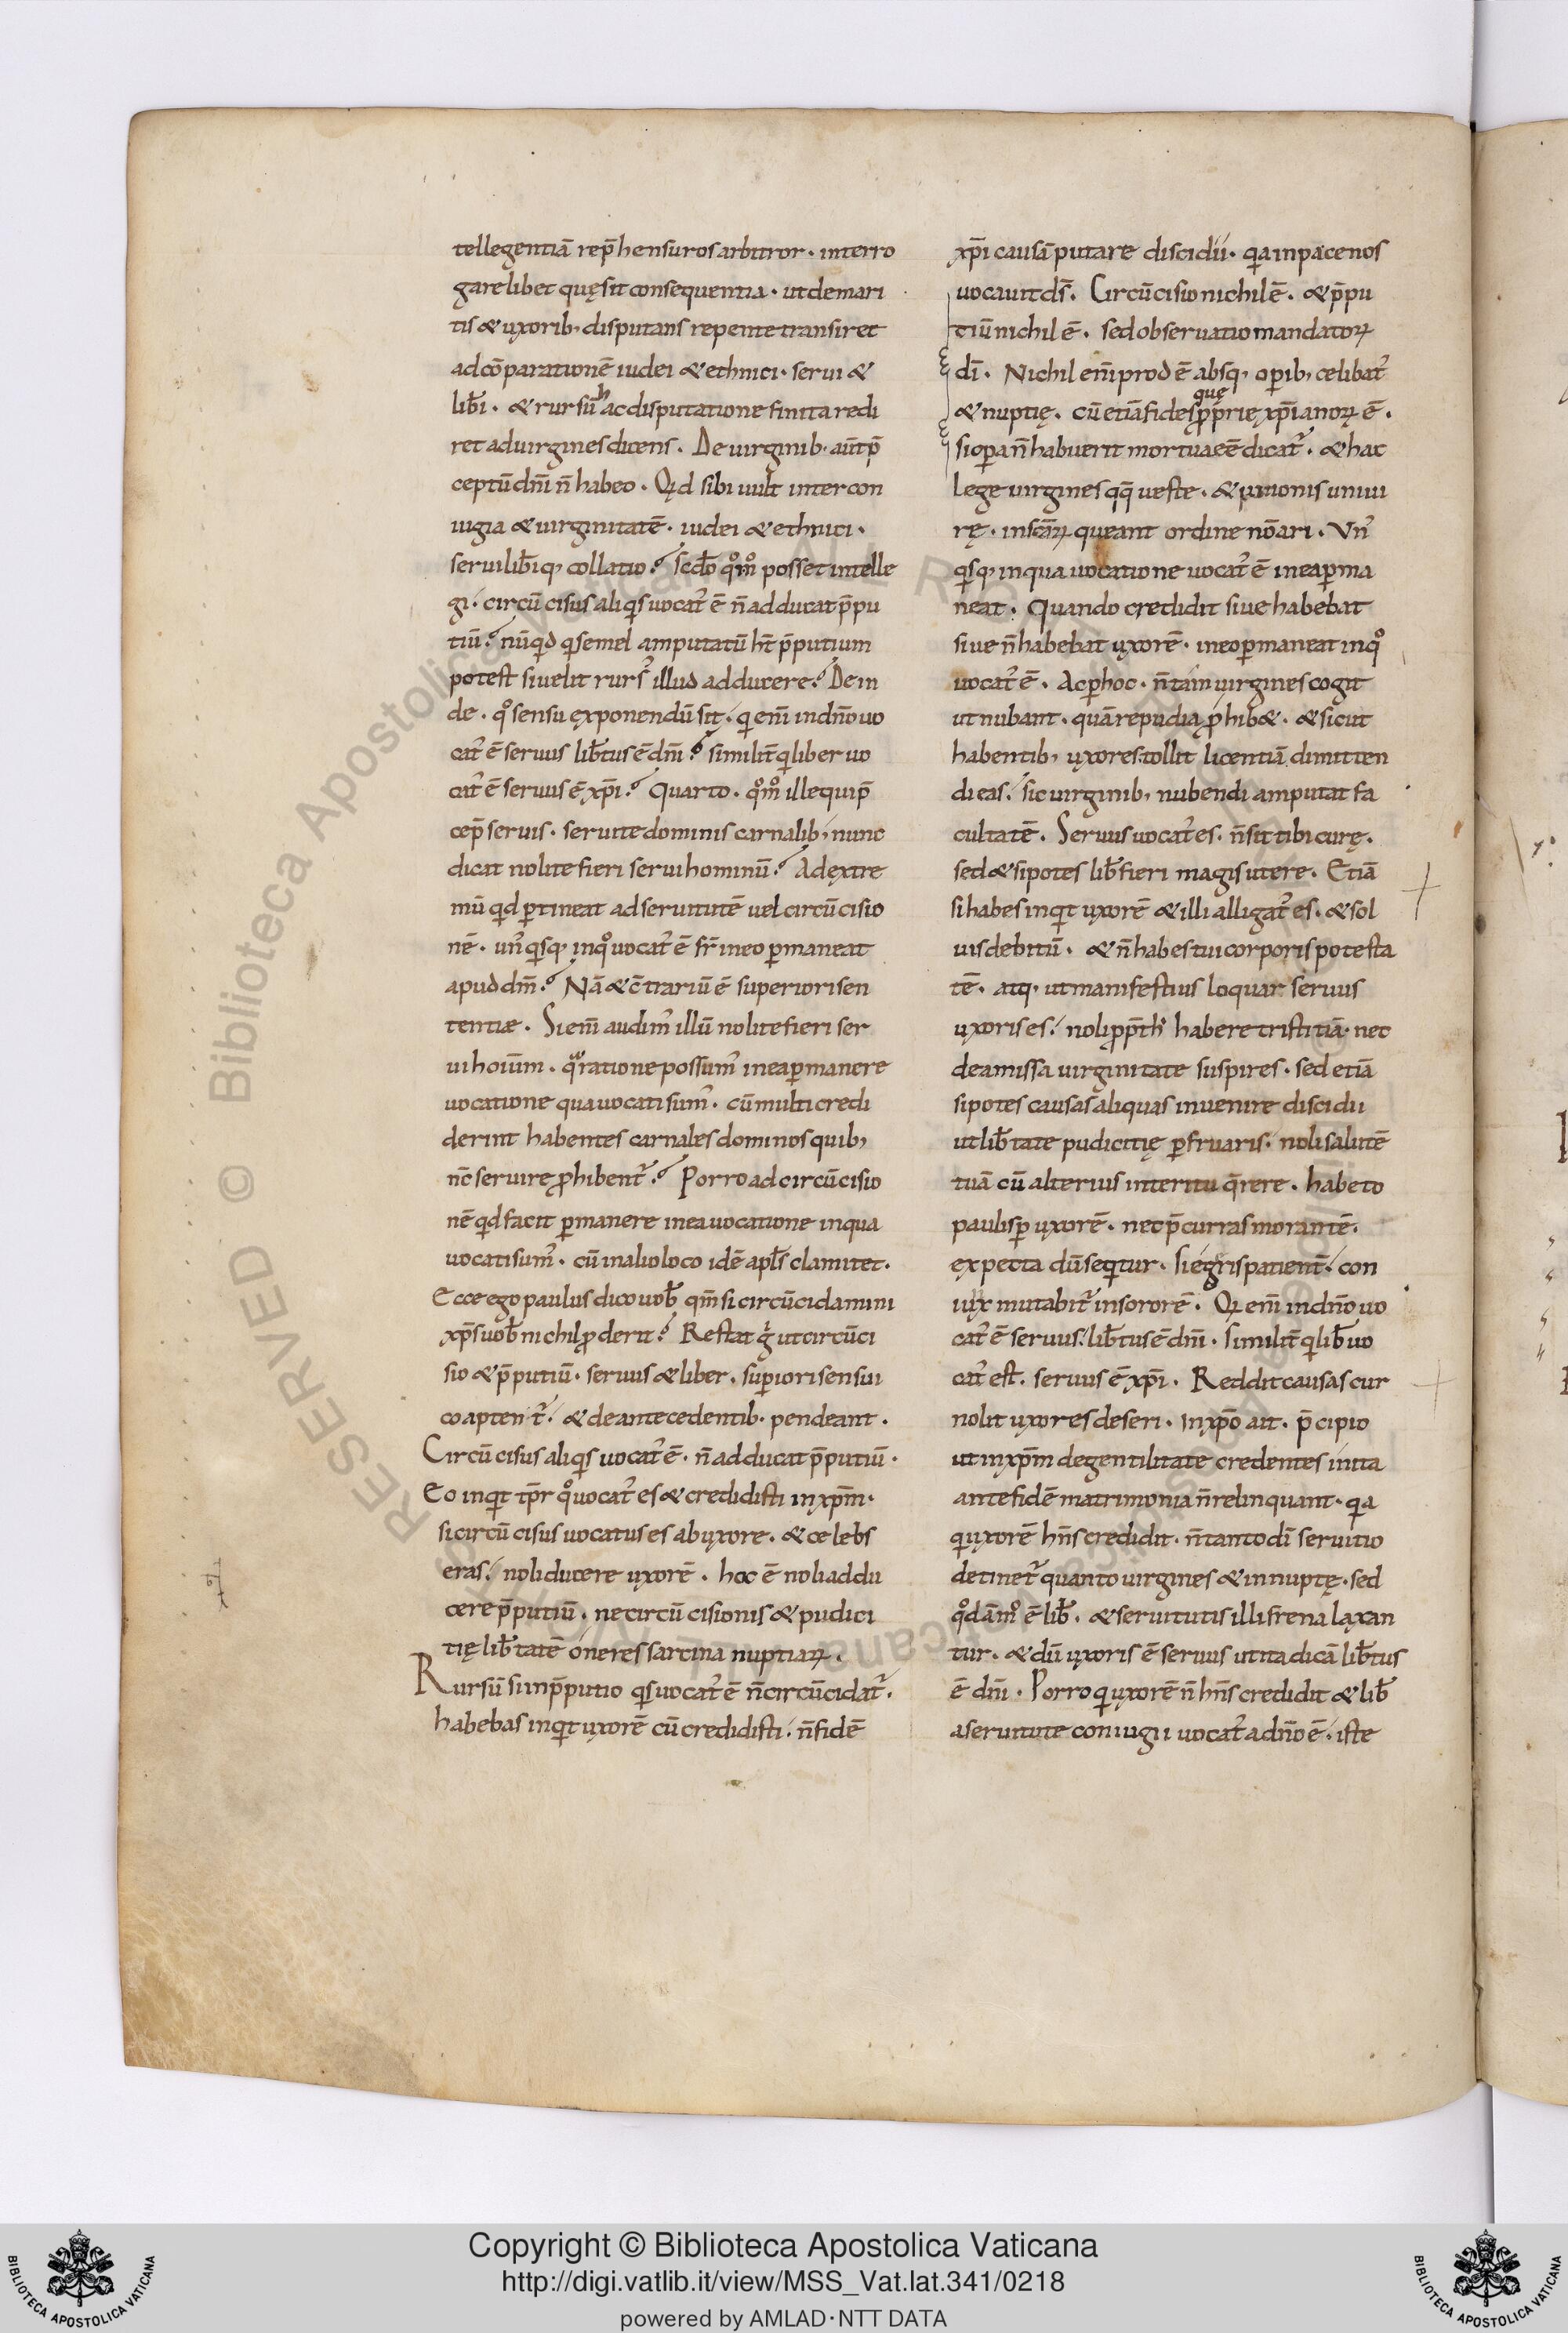 tellegentiā rep̄hensuros arbitror · interro
gare libet quęsit consequentia · ut de mari
tis & uxorib; disputans repente transiret
ad cōparationē iudei & ethnici · serui &
lib̄i · & rursū hac disputatione finita redi
ret ad uirgines dicens · De uirginib; aūt p̄
ceptū dn̄i n̄ habeo · Qd sibi uult inter con
iugia & uirginitatē · iudei & ethnici ·
serui lib̄iq; collatio? Scd̄o qͦmͦ posset intelle
gi · circū cisus aliqs uocat᷒ ē n̄ adducat p̄pu
tiū? nūqd q semel amputatū ht̄ p̄putium
potest si uelit rurs᷒ illud adducere? Dein
de · qͦ sensu exponendū sit · q eni᷒ in dn̄o uo
cat᷒ ē seruus lib̄tus ē dn̄i? similit̄ q liber uo
cat᷒ ē seruus ē xp̄i? Quarto · qͦmͦ ille qui p̄
cep̄ seruis · seruite dominis carnalib; nunc
dicat nolite fieri serui hominū? Ad extre
mū qd ꝑtineat ad seruitutē uel circū cisio
nē · un᷒ qsq; in qͦ uocat᷒ ē fr̄ in eo ꝑmaneat
apud dm̄? Nā & c̄trariū ē superiori sen
tentiæ · Si eni᷒ audim᷒ illū nolite fieri ser
ui hoiūm · qͣ ratione possum᷒ in ea ꝑmanere
uocatione qua uocati sum᷒ · cū multi credi
derint habentes carnales dominos quib;
nc̄ seruire ꝓhibent᷒? Porro ad circū cisio
nē qd facit ꝑmanere in ea uocatione in qua
uocati sum᷒ · cū in alio loco idē apls̄ clamitet ·
Ecce ego paulus dico uob̄ qm̄ si circūcidamini
xp̄s uob̄ nichil ꝓderit? Restat gͥ ut circūci
sio & p̄putiū · seruus & liber · suꝑiori sensui
coaptent᷒ · & de antecedentib; pendeant ·
Circū cisus aliqs uocat᷒ ē · n̄ adducat p̄putiū ·
Eo inqt tp̄r qͦ uocat᷒ es & credidisti in xp̄m ·
si circū cisus uocatus es ab uxore · & celebs
eras · noli ducere uxorē · hoc ē noli addu
cere p̄putiū · ne circū cisionis & pudici
tię lib̄tatē oneres sarcina nuptiaꝝ ·
Rursū si in p̄putio qs uocat᷒ ē n̄ circūcidat᷒ ·
habebas inqt uxorē cū credidisti · n̄ fidē
xp̄i causā putare discidii · qa in pace nos
uocauit ds̄ · Circūcisio nichil ē · & p̄pu
tiū nichil ē · sed obseruatio mandatoꝝ
dī · Nichil eni᷒ prod ē absq; oꝑib; celibat᷒
quę
& nuptię · cū etiā fides ꝓprie xp̄ianoꝝ ē ·
si oꝑa n̄ habuerit mortua ēē dicat᷒ · & hac
lege uirgines qq̄ ueste · & iunonis uniui
rę · in scāꝝ queant ordine nōari · Vn᷒
qsq; in qua uocatione uocat᷒ ē in ea ꝑma
neat · Quando credidit siue habebat
siue n̄ habebat uxorē · in eo ꝑmaneat in qͦ
uocat᷒ ē · Ac ꝑ hoc · n̄ tam uirgines cogit
ut nubant · quā repudia ꝓhib& · & sicut
habentib; uxores tollit licentiā dimitten
di eas · sic uirginib; nubendi amputat fa
cultatē · Seruus uocat᷒ es · n̄ sit tibi curę ·
sed & si potes lib̄ fieri magis utere · Etiā
si habes inqt uxorē & illi alligat᷒ es · & sol
uis debitū · & n̄ habes tui corporis potesta
tē · atq; ut manifestius loquar seruus
uxoris es · noli ꝓpt̄ h̄ habere tristitiā · nec
de amissa uirginitate suspires · sed etiā
si potes causas aliquas inuenire discidii
ut lib̄tate pudicitię ꝑfruaris · noli salutē
tuā cū alterius interitu q̄rere · habeto
paulisꝑ uxorē · nec p̄curras morantē ·
expecta dū seqtur · Si egris patient᷒ · con
iux mutabit᷒ in sororē · Q eni᷒ in dn̄o uo
cat᷒ ē seruus · lib̄tus ē dn̄i · Similit̄ q lib̄ uo
cat᷒ est · seruus ē xp̄i · Reddit causas cur
nolit uxores deseri · In xp̄o ait · p̄cipio
ut in xp̄m de gentilitate credentes inita
ante fidē matrimonia n̄ relinquant · qa
q uxorē hn̄s credidit · n̄ tanto dī seruitio
detinet᷒ quanto uirgines & innuptę · sed
qͦdā mͦ ē lib̄ · & seruitutis illi frena laxan
tur · & dū uxoris ē seruus ut ita dicā lib̄tus
ē dn̄i · Porro q uxorē n̄ hn̄s credidit & lib̄
a seruitute coniugii uocat᷒ a dn̄o ē · iste
RESERVED © Biblioteca Apostolica Vaticana
Copyright © Biblioteca Apostolica Vaticana
http://digi.vatlib.it/view/MSS_Vat.lat.341/0218
powered by AMLAD·NTT DATA
BIBLIOTECA APOSTOLICA VATICANA
BIBLIOTECA APOSTOLICA VATICANA